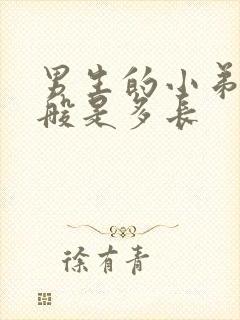 男生的小弟
般是多长
徐有青